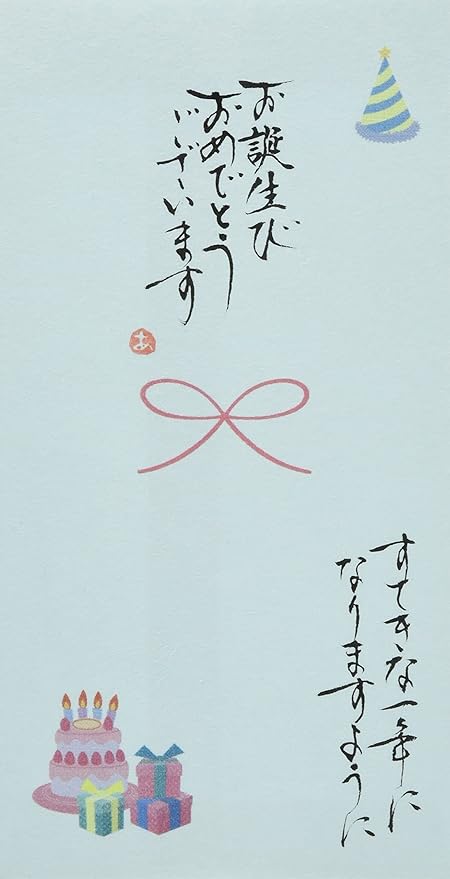 お誕生び
おめでとう
ございます
あ
すてきな一年に
なりますように